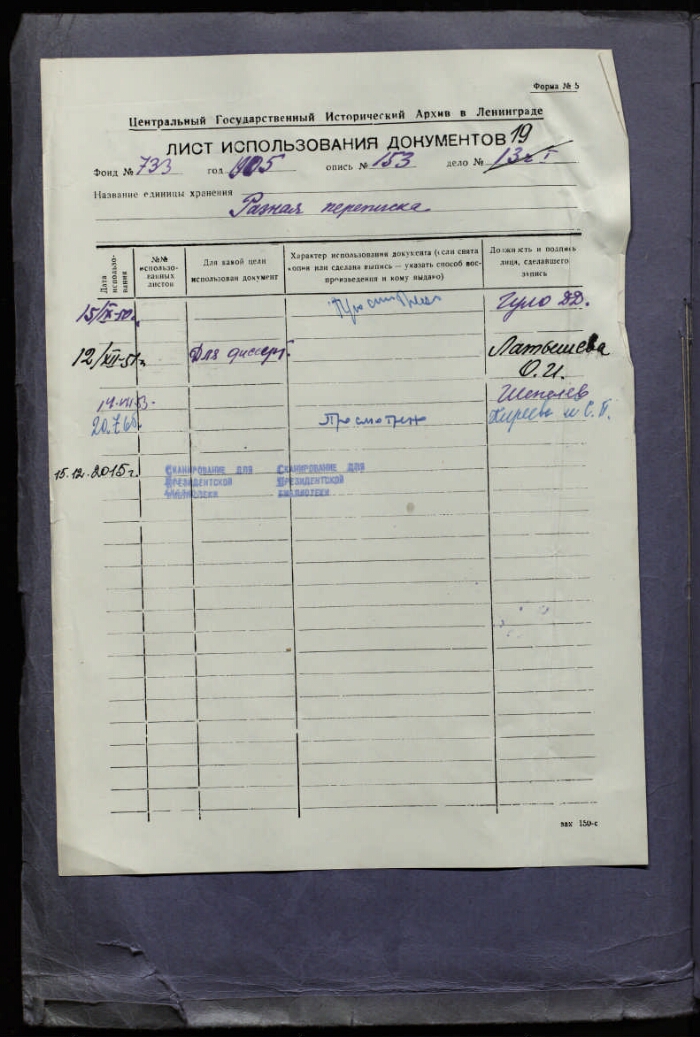 Форма № 5
Центральный Государственный Исторический Архив в Ленинграде
ЛИСТ ИСПОЛЬЗОВАНИЯ ДОКУМЕНТОВ 19
Фонд № 733 год 1905 опись № 153 дело №
Название единицы хранения
Разная переписка
Дата использования
№№ использованных листов
Для какой цели использован документ
Характер использования документа (если снята копия или сделана выпись — указать способ воспроизведения и кому выдано)
Должность и подпись лица, сделавшего запись
15/IX-50. Гуло Д.Д.
12/XII-51г. Для диссерт. Латышева О.И.
14.VII 53. Шепелев
20.7.65 Просмотрен Киреева С.П.
15.12.2015г. Сканирование для Президентской библиотеки Сканирование для Президентской библиотеки
зак 150-с